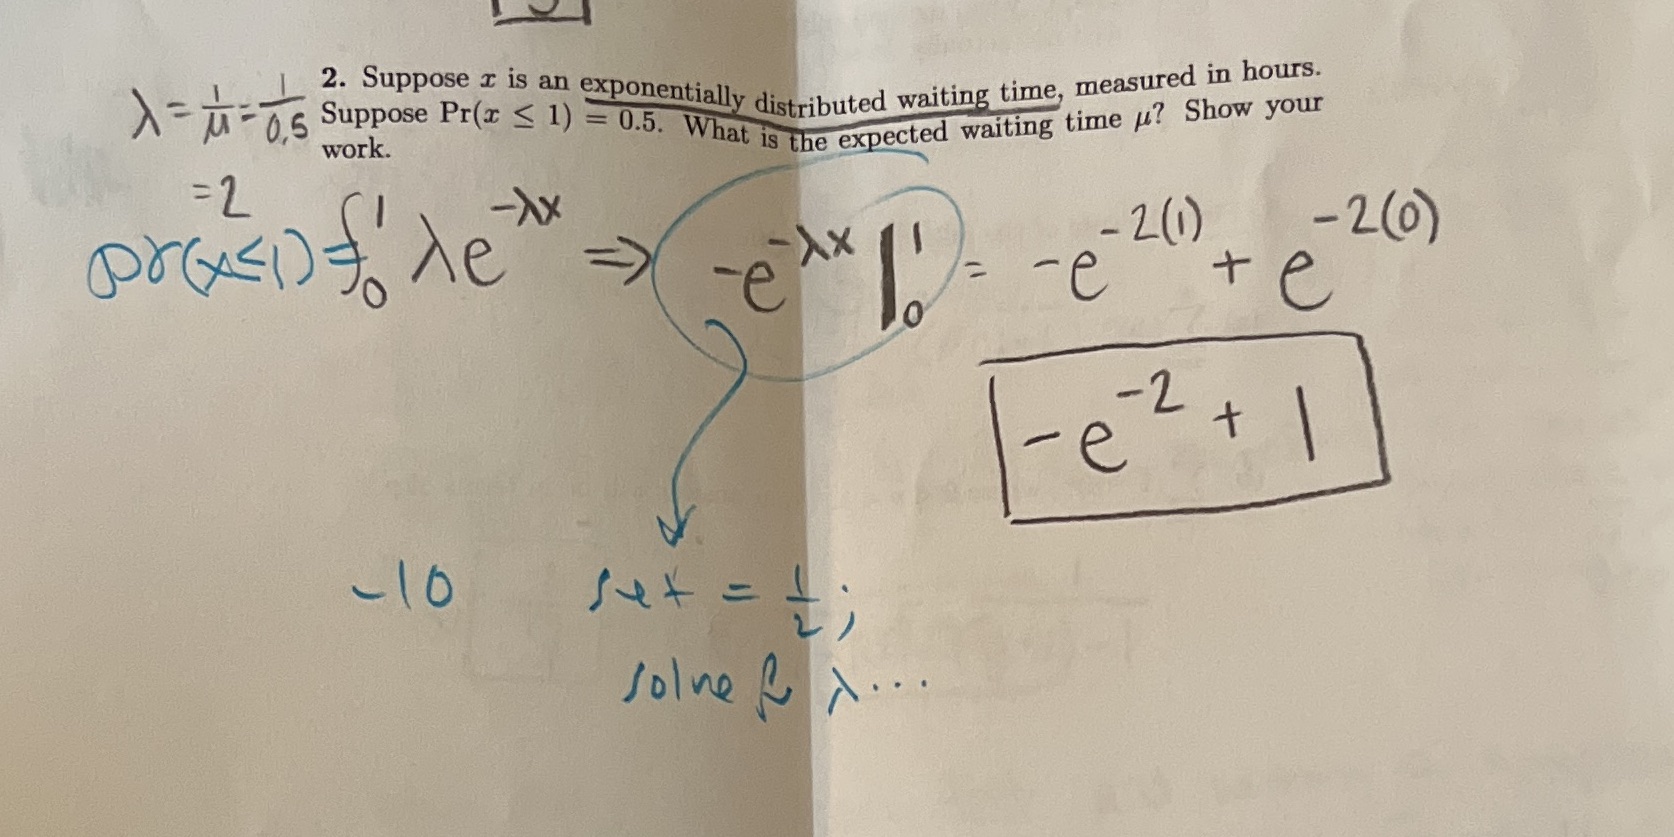 2. Suppose x is an exponentially distributed waiting time, measured in hours.
Suppose Pr(x ≤ 1) = 0.5. What is the expected waiting time μ? Show your
work.
λ = 1/μ = 1/0.5
= 2
pr(x≤1) = ∫₀¹ λe^(-λx) ⇒ -e^(-λx) |₀¹ = -e^(-2(1)) + e^(-2(0))
-e^(-2) + 1
-10 set = 1/2;
solve for λ...